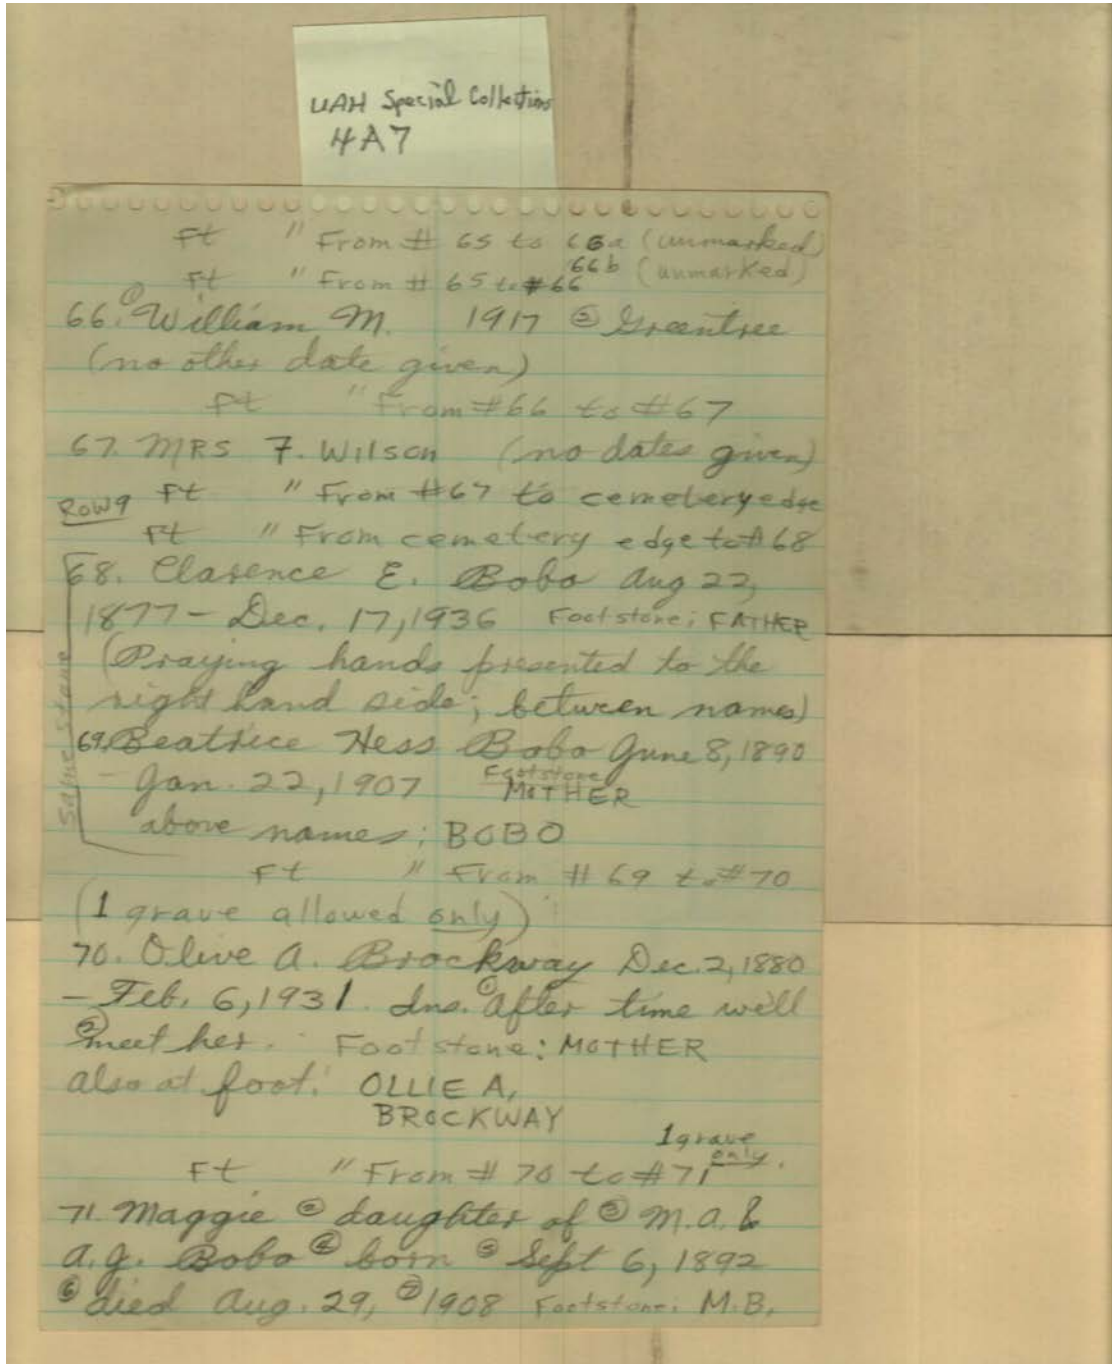 UAH Special Collections
4A7
Ft " From # 65 to 66a (unmarked)
66b (unmarked)
Ft " From # 65 to #66
66. ① William M. 1917 ② Greentree
(no other date given)
Ft " From #66 to #67
67. MRS F. Wilson (no dates given)
Ft " From #67 to cemetery edge
Row 9
Ft " From cemetery edge to #68
68. Clarence E. Bobo Aug 22,
1877 - Dec. 17, 1936 Footstone: FATHER
(Praying hands presented to the
right hand side; between names)
Same stone
69. Beatrice Hess Bobo June 8, 1890
- Jan. 22, 1907 Footstone
MOTHER
above names: BOBO
Ft " From # 69 to #70
(1 grave allowed only)
70. Olive A. Brockway Dec. 2, 1880
- Feb. 6, 1931. Ins. ① After time we'll
② meet her. Footstone: MOTHER
also at foot: OLLIE A,
BROCKWAY
1 grave
only.
Ft " From # 70 to #71
71. Maggie ② daughter of ③ M.A. &
A.J. Bobo ④ born ⑤ Sept 6, 1892
⑥ died Aug. 29, ⑦ 1908 Footstone: M.B.